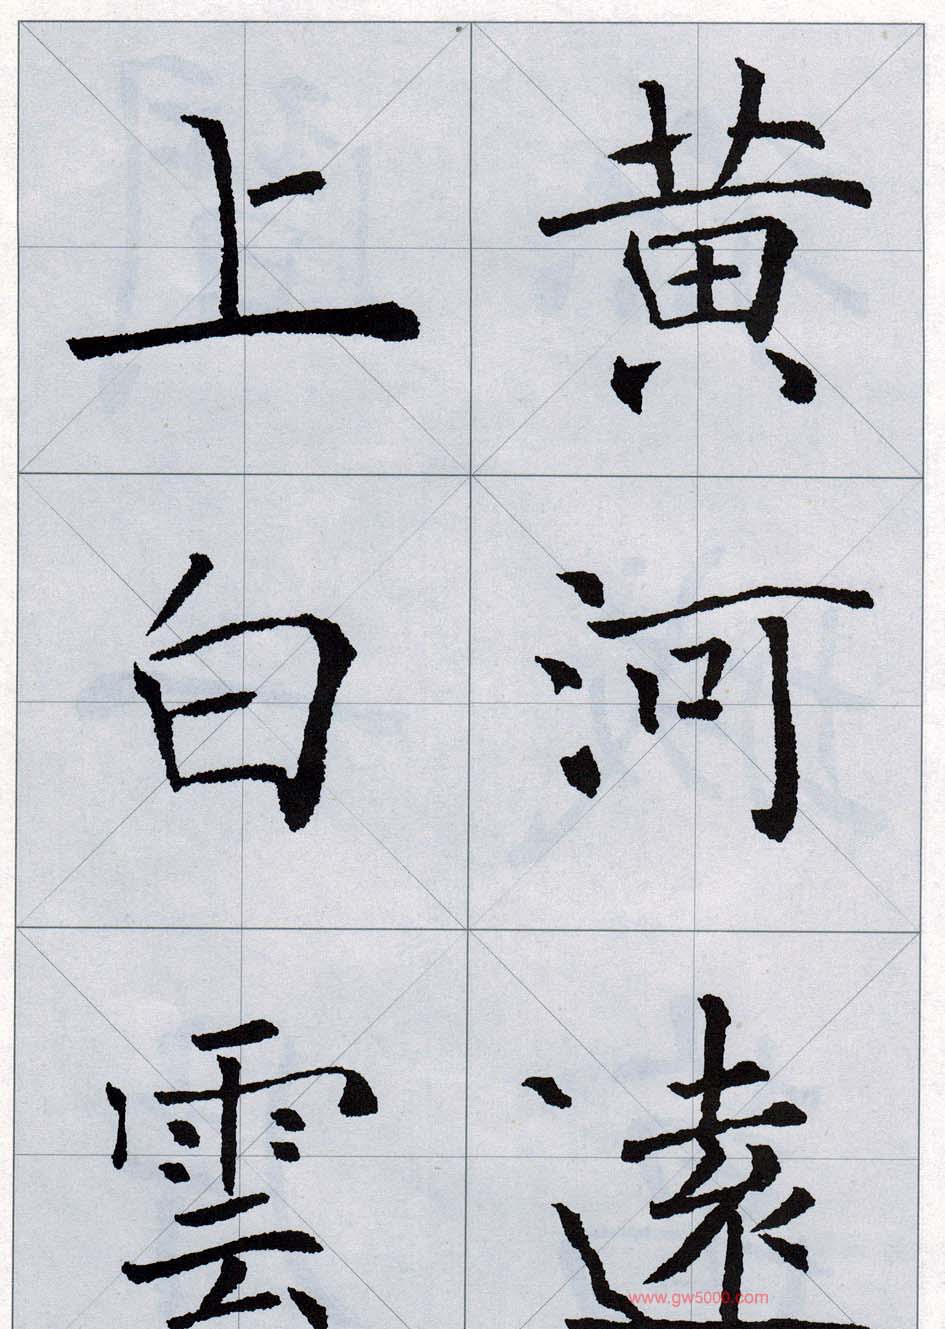 黄河遠
上白雲
www.gw5000.com